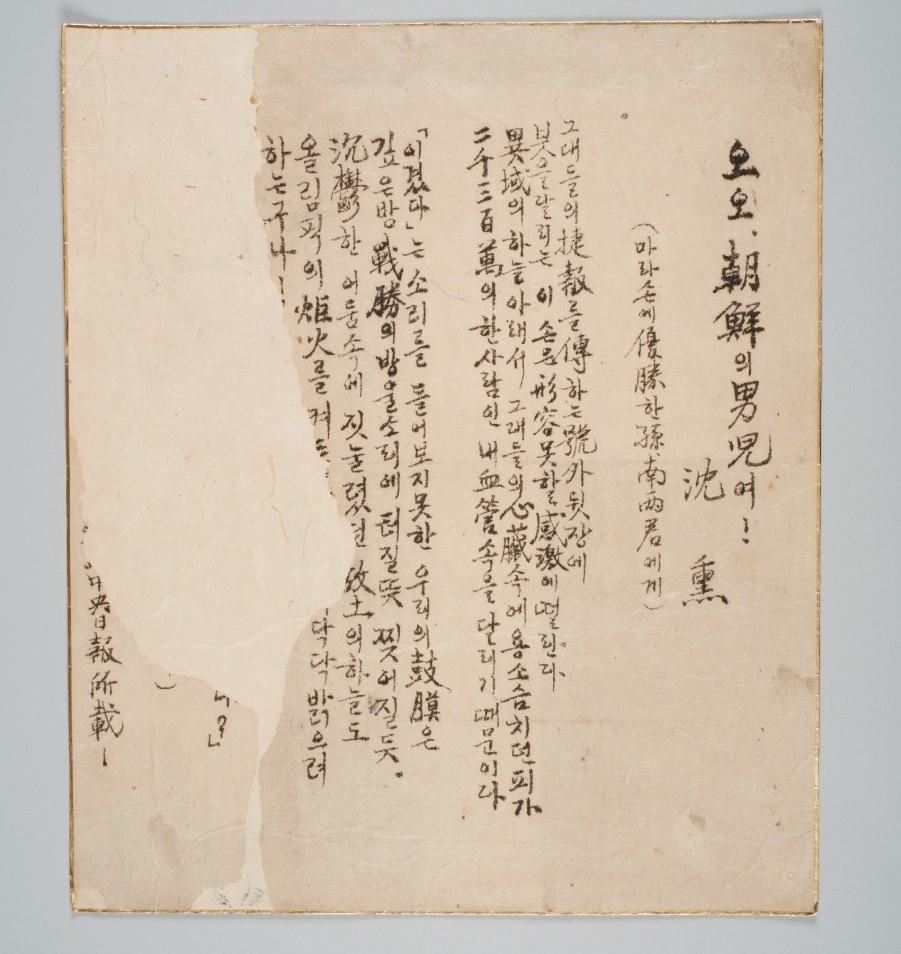 오오、朝鮮의男児여!
沈 熏
(마라손에優勝한孫、南兩君에게)
그대들의捷報를傳하는號外뒷장에
붓을달리는 이 손은形容못할感激에떨린다.
異域의하늘아래서 그대들의心臟속에용소슴치던피가
二千三百萬의한사람인 내血管속을달리기때문이다
「이겼다」는소리를 들어보지못한 우리의鼓膜은
깊은밤戰勝의방울소리에 터질뜻 찢어질듯。
沈鬱한 어둠속에 짓눌렸던 故土의하늘도
올림픽의炬火를켜 닥닥밝으려
하는구나!
央日報所載!